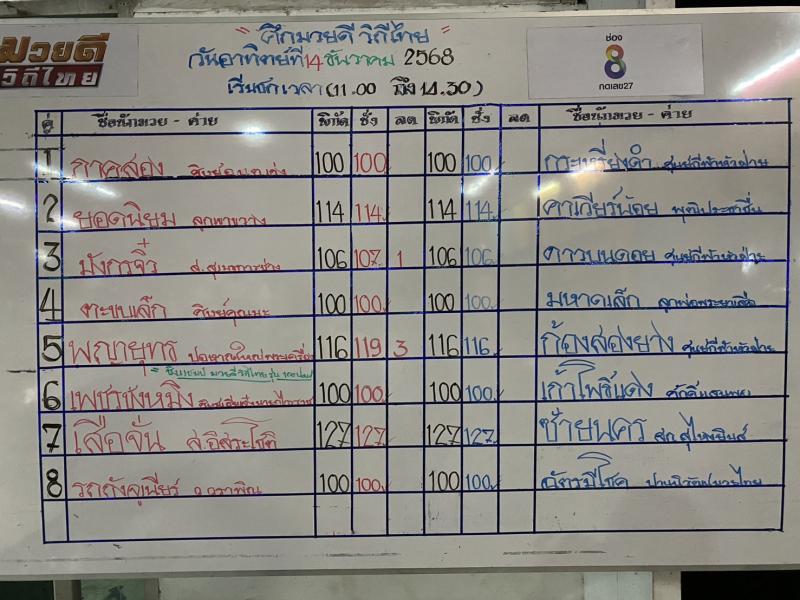 มวยดี
วิถีไทย
" ศึกมวยดี วิถีไทย "
วันอาทิตย์ที่ 14 ธันวาคม 2568
เริ่มชกเวลา (11.00 ถึง 14.30)
ช่อง
8
กดเลข27
คู่ ชื่อนักมวย - ค่าย พิกัด ชั่ง ลด พิกัด ชั่ง ลด ชื่อนักมวย - ค่าย
1 ภาคสอง 100 100 100 100 กระเหรี่ยงดำ ศูนย์กีฬาหัวฝาย
2 ยอดนิยม ลูกเขาขวาง 114 114 114 114 คาเวียร์น้อย
3 มังกรจิ๋ว 106 107 1 106 106 ดาวบนดอย ศูนย์กีฬาหัวฝาย
4 ตะขบเล็ก ศิษย์คุณมะ 100 100 100 100 มหาดเล็ก ลูกพ่อพระยาเสือ
5 พญายุทธ 116 119 3 116 116 ก้องสองยาง ศูนย์กีฬาหัวฝาย
6 เพชรชังหมิง 100 100 100 100 เก้าโพธิ์แดง
7 เสือจั่น ส.อิสระโชติ 127 127 127 127 ซ้ายนคร
8 รถถังจูเนียร์ 100 100 100 100 ฉัตรมีโชค